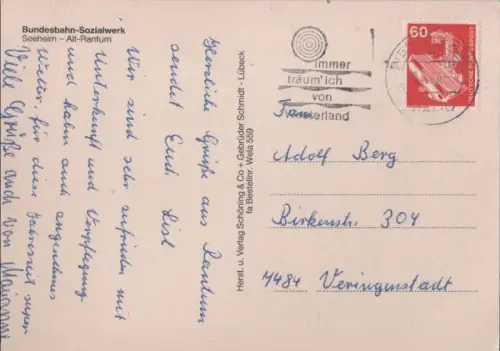 Bundesbahn-Sozialwerk
Seeheim – Alt-Rantum
Herzliche Grüße aus Rantum
sendet Euch Lisl
Wir sind sehr zufrieden mit
Unterkunft und Verpflegung
und haben auch angenehmes
Wetter, für diese Jahreszeit super
Viele Grüße auch von Marianne
Herst. u. Verlag Schöning & Co + Gebrüder Schmidt - Lübeck
fa Bestellnr. Wela 559
immer
träum'ich
von
Westerland
60
DEUTSCHE BUNDESPOST
Fam.
Adolf Berg
Birkenstr. 304
7484 Veringenstadt